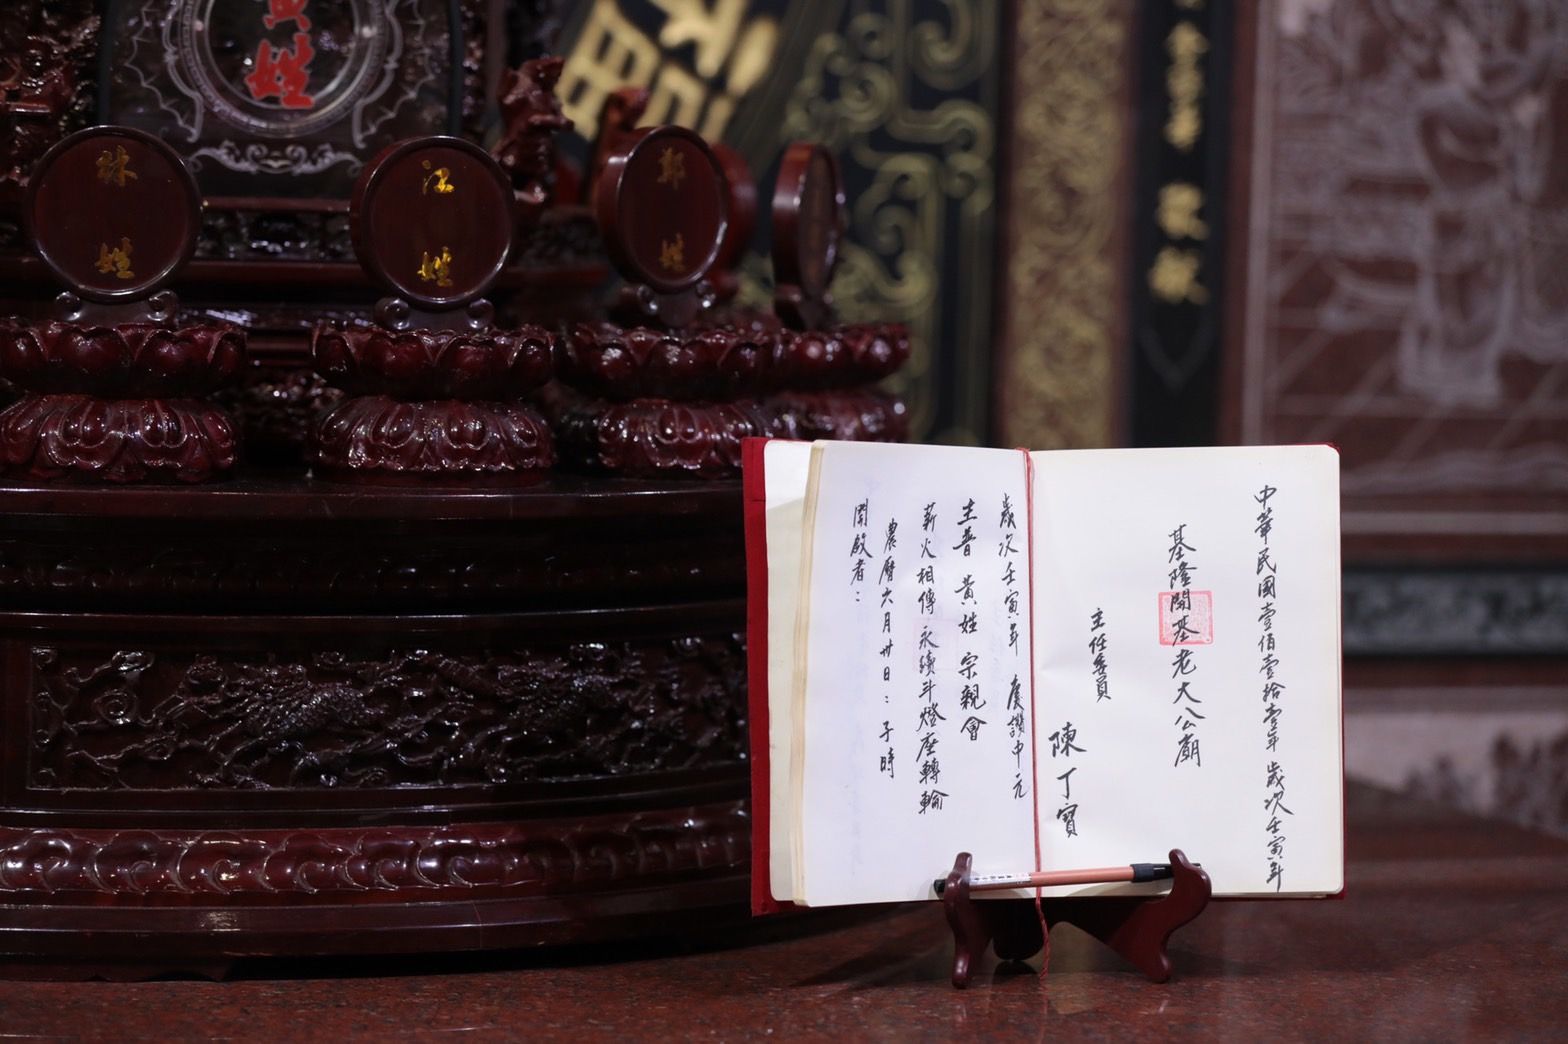 中華民國壹佰壹拾壹年歲次壬寅年
基隆開基老大公廟
主任委員
陳丁寶
歲次壬寅年 慶讚中元
主普 黃姓宗親會
薪火相傳 永續斗燈座轉輪
農曆六月廿日：子時
開啟者：